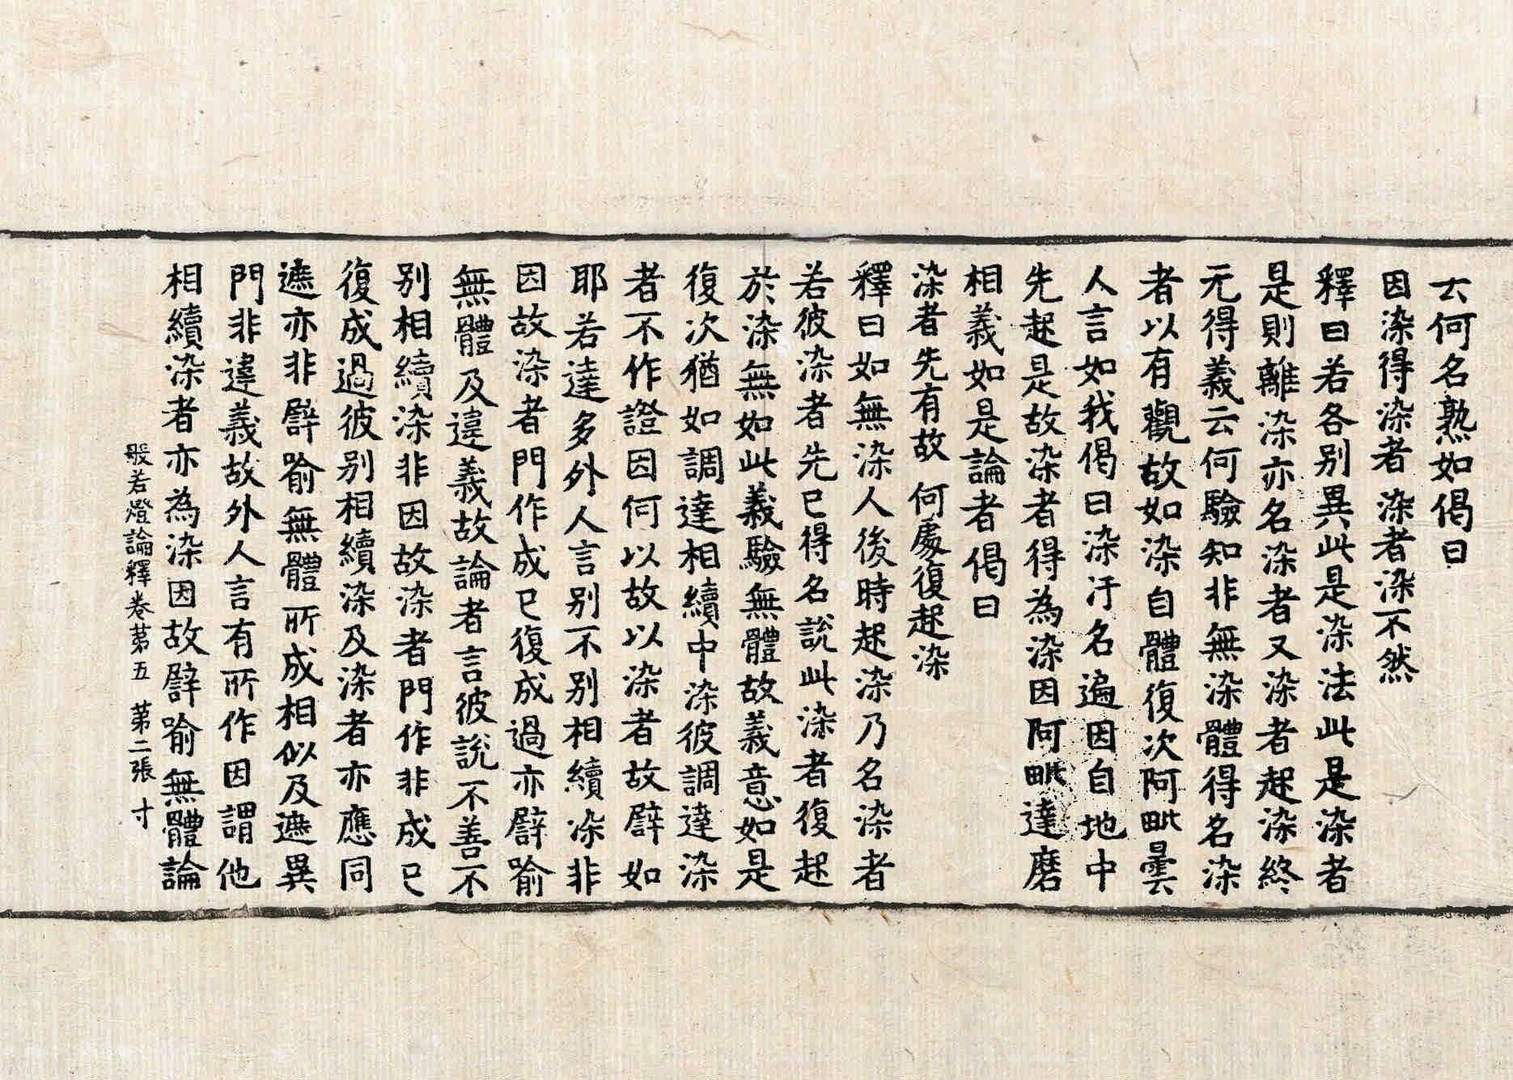 云何名熟如偈曰
因染得染者 染者染不然
釋曰若各別異此是染法此是染者
是則離染亦名染者又染者起染終
无得義云何驗知非無染體得名染
者以有觀故如染自體復次阿毗曇
人言如我偈曰染汙名遍因自地中
先起是故染者得為染因阿毗達磨
相義如是論者偈曰
染者先有故 何處復起染
釋曰如無染人後時起染乃名染者
若彼染者先已得名說此染者復起
於染無如此義驗無體故義意如是
復次猶如調達相續中染彼調達染
者不作證因何以故以染者故譬如
耶若達多外人言別不別相續染非
因故染者門作成已復成過亦譬喻
無體及違義故論者言彼說不善不
別相續染非因故染者門作非成已
復成過彼別相續染及染者亦應同
遮亦非譬喻無體所成相似及遮異
門非違義故外人言有所作因謂他
相續染者亦為染因故譬喻無體論
般若燈論釋卷第五 第二張 寸